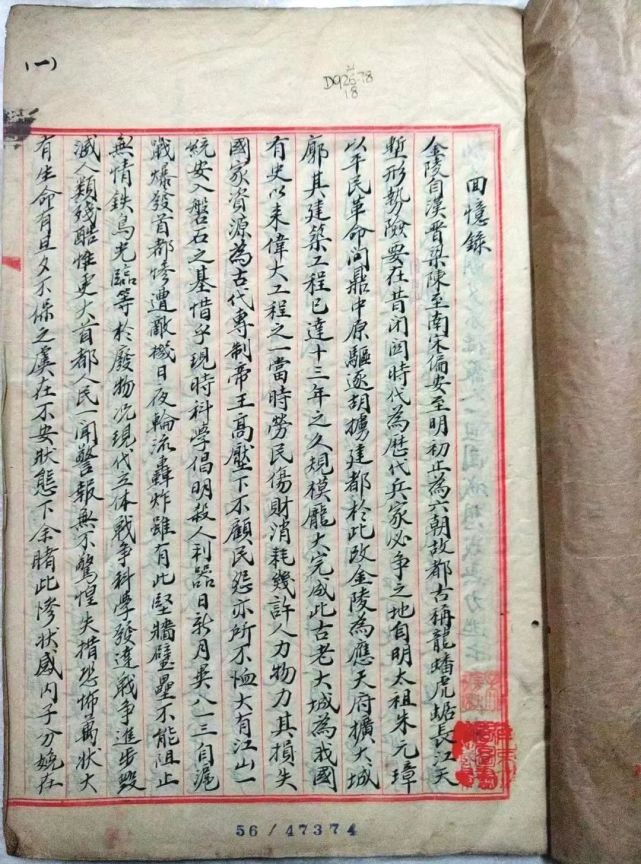 (一)
18
回憶錄
金陵自漢晉梁陳至南宋偏安至明初止為六朝故都古稱龍蟠虎踞長江天
塹形勢險要在昔闭関時代為歷代兵家必爭之地自明太祖朱元璋
以平民革命问鼎中原驅逐胡擄建都於此改金陵為應天府擴大城
廓其建築工程已達十三年之久規模龐大完成此古老大城為我國
有史以來偉大工程之一當時勞民傷財消耗幾許人力物力其損失
國家資源為古代專制帝王高壓下不顧民怨亦所不恤大有江山一
統安入盤石之基惜乎現時科學倡明殺人利器日新月異八一三自滬
戰爆發首都慘遭敵機日夜輪流轟炸雖有此堅牆壁壘不能阻止
無情鉄鳥光臨等於廢物况現代立体戰爭科學發達戰爭進步毀
滅人類殘酷惟更大首都人民一聞警報無不驚惶失措恐怖萬狀大
有生命有旦夕不保之虞在不安狀態下余睹此慘狀感內子分娩在
56/47374